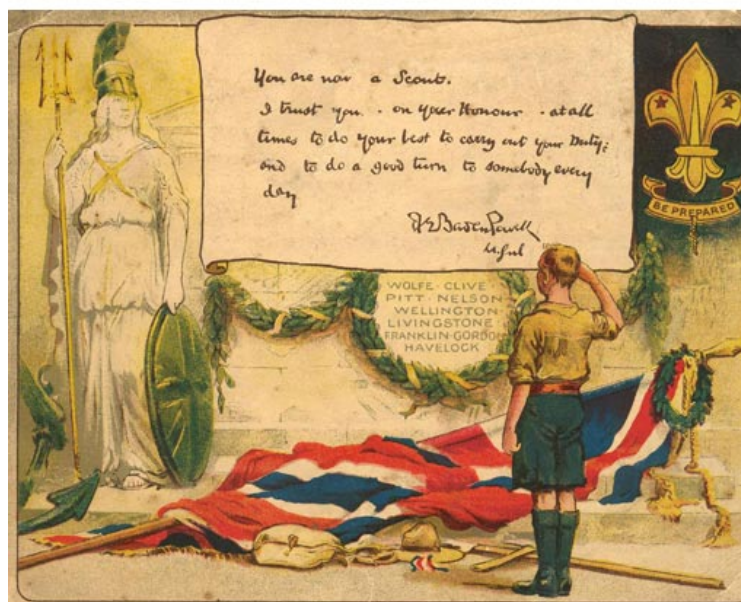 You are now a Scout.
I trust you - on your Honour - at all
times to do your best to carry out your Duty;
and to do a good turn to somebody every
day
Baden Powell
BE PREPARED
WOLFE · CLIVE ·
PITT · NELSON
WELLINGTON
LIVINGSTONE ·
FRANKLIN · GORDON
HAVELOCK